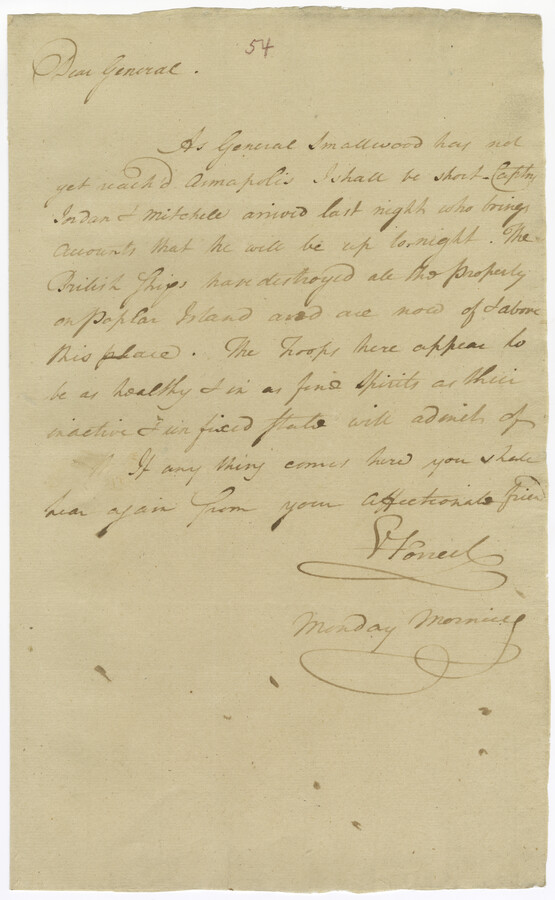 54
Dear General.
As General Smallwood has not
yet reach'd Annapolis I shall be short. Captns
Jordan & Mitchell arrived last night who brings
accounts that he will be up to night. The
British Ships have destroyed all the Property
on Poplar Island and are now of & above
this place. The Troops here appear to
be as healthy & in as fine Spirits as their
inactive & unfixed state will admit of
If any thing comes here you shall
hear again from your affectionate friend
Monday Morning